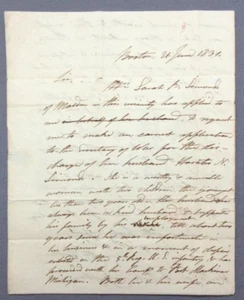 Boston 21 June 1831.
Sir
Mrs. Sarah R. Simonds
of Malden in this vicinity has applied to
me in behalf of her husband, & request
me to make an earnest application
to the Secretary of War for the dis-
charge of her husband
Simonds - She is a worthy &
woman with two children the youngest
less than two years old - the husband
always been a kind husband & supported
his family by his employment till about two
years since he was unfortunate in
his business & in a moment of despair
enlisted in the 5 Reg. U.S. infantry & has
marched with his band to Fort Mackinac
Michigan. Both he & his wife are